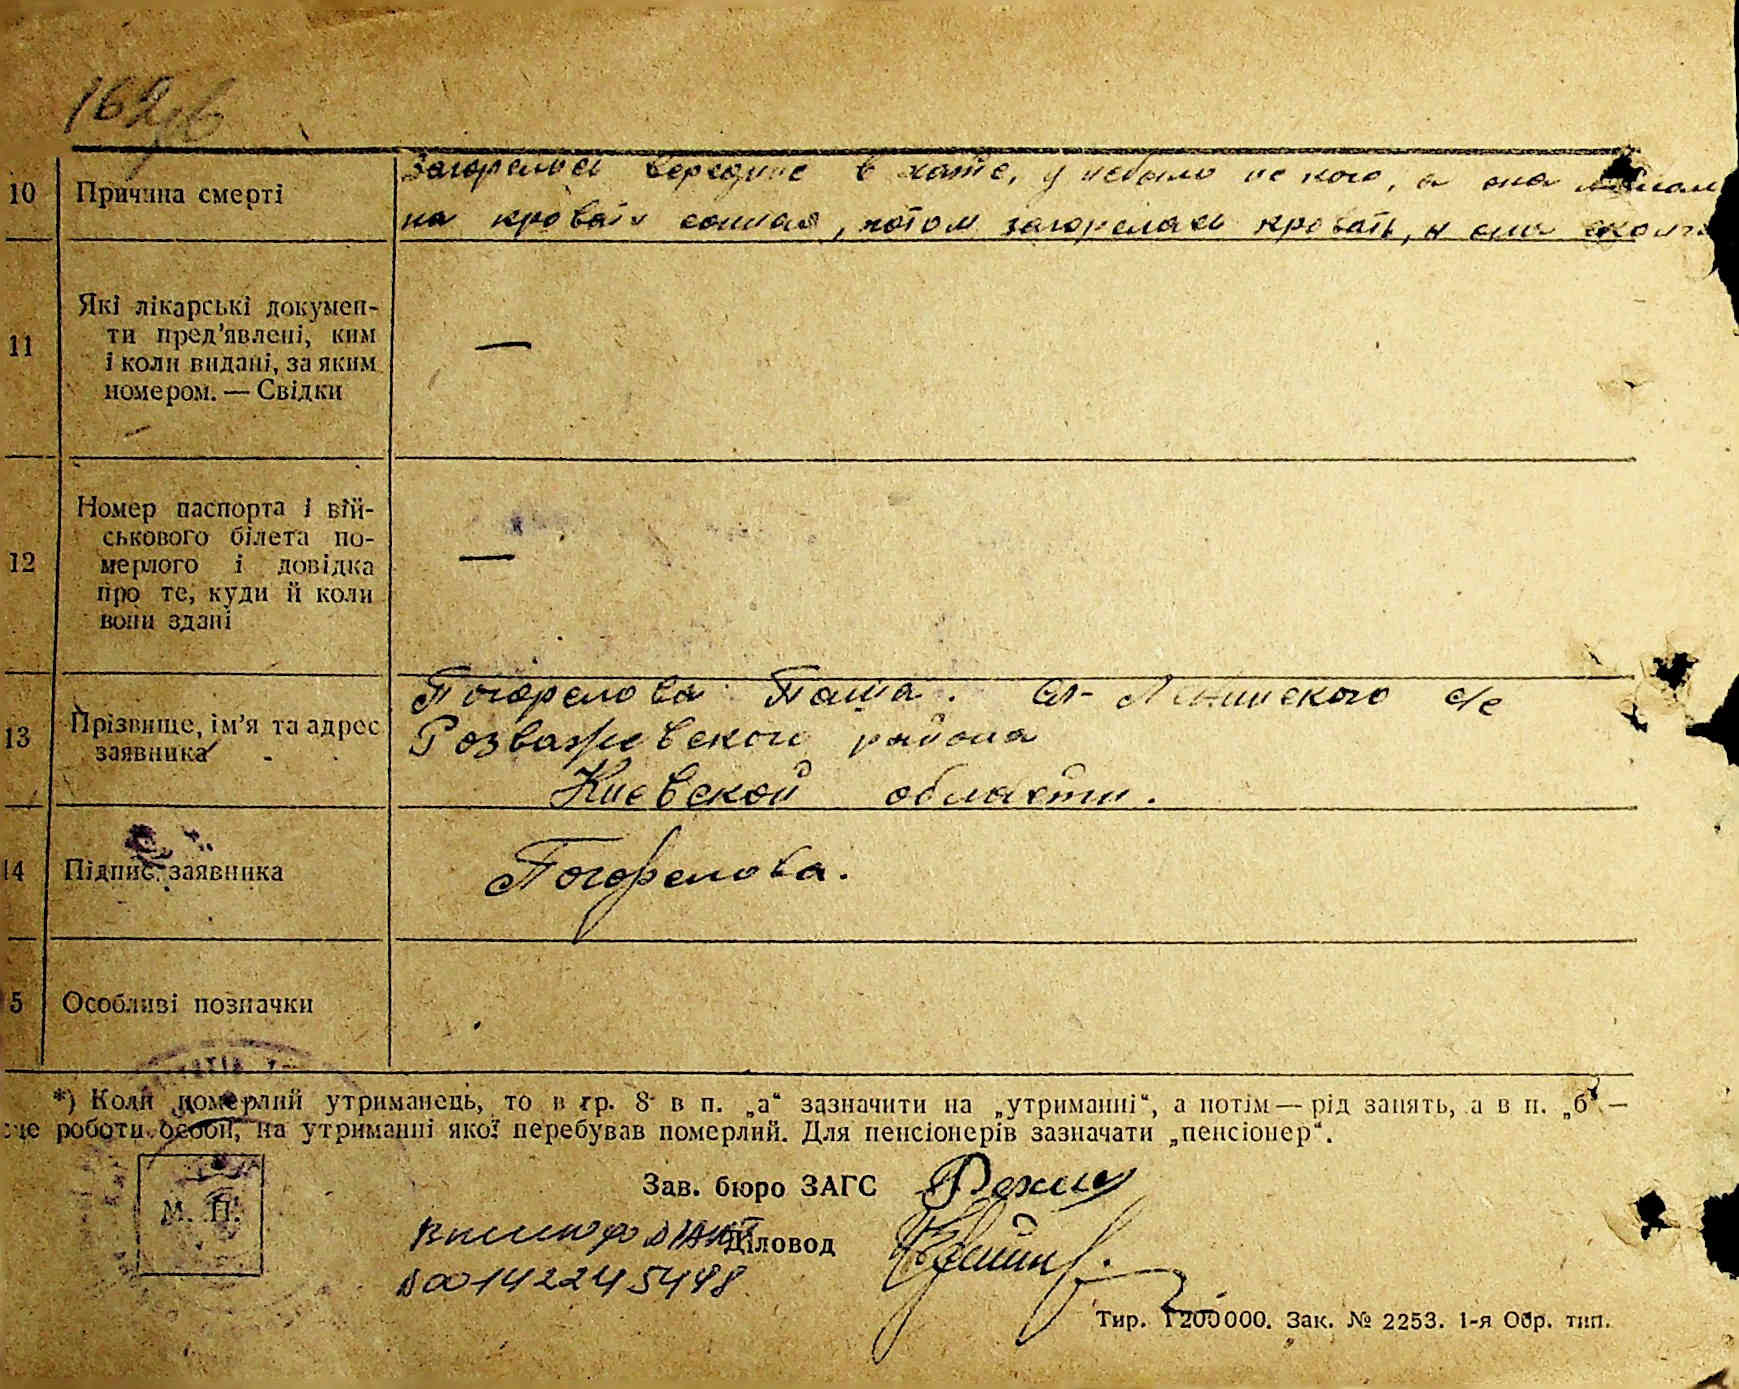 162
10 Причина смерті
Загорелося середине в хате, у небыло не кого, а она
на кровати сонная, потом загорелася кровать, и она
11 Які лікарські докумен-
ти пред’явлені, ким
і коли видані, за яким
номером. — Свідки
—
12 Номер паспорта і вій-
ськового білета по-
мерлого і довідка
про те, куди й коли
вони здані
—
13 Прізвище, ім’я та адрес
заявника
Погорелова Паша. Ленинского с/с
Розважевского района
Киевской области.
14 Підпис заявника
Погорелова.
5 Особливі позначки
*) Коли померлий утриманець, то в гр. 8 в п. „а“ зазначити на „утриманні“, а потім — рід занять, а в п. „б“ —
це роботи особи, на утриманні якої перебував померлий. Для пенсіонерів зазначати „пенсіонер“.
М. П.
Зав. бюро ЗАГС
Діловод
00142245498
Тир. 1200000. Зак. № 2253. 1-я Обр. тип.